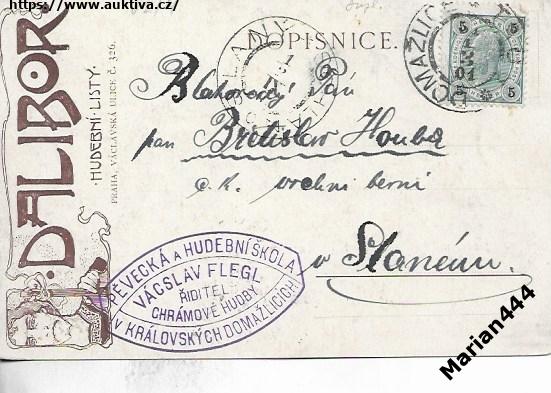 https://www.auktiva.cz/
DALIBOR
HUDEBNÍ LISTY
PRAHA, VÁCLAVSKÁ ULICE Č. 326.
DOPISNICE.
DOMAŽLICE
5 5
5 5
Blahorodý Pán
pan Břetislav Houba
c. k. vrchní berní
v Slaném
PĚVECKÁ A HUDEBNÍ ŠKOLA
VÁCSLAV FLEGL
ŘIDITEL
CHRÁMOVÉ HUDBY
V KRÁLOVSKÝCH DOMAŽLICÍCH
Marian444